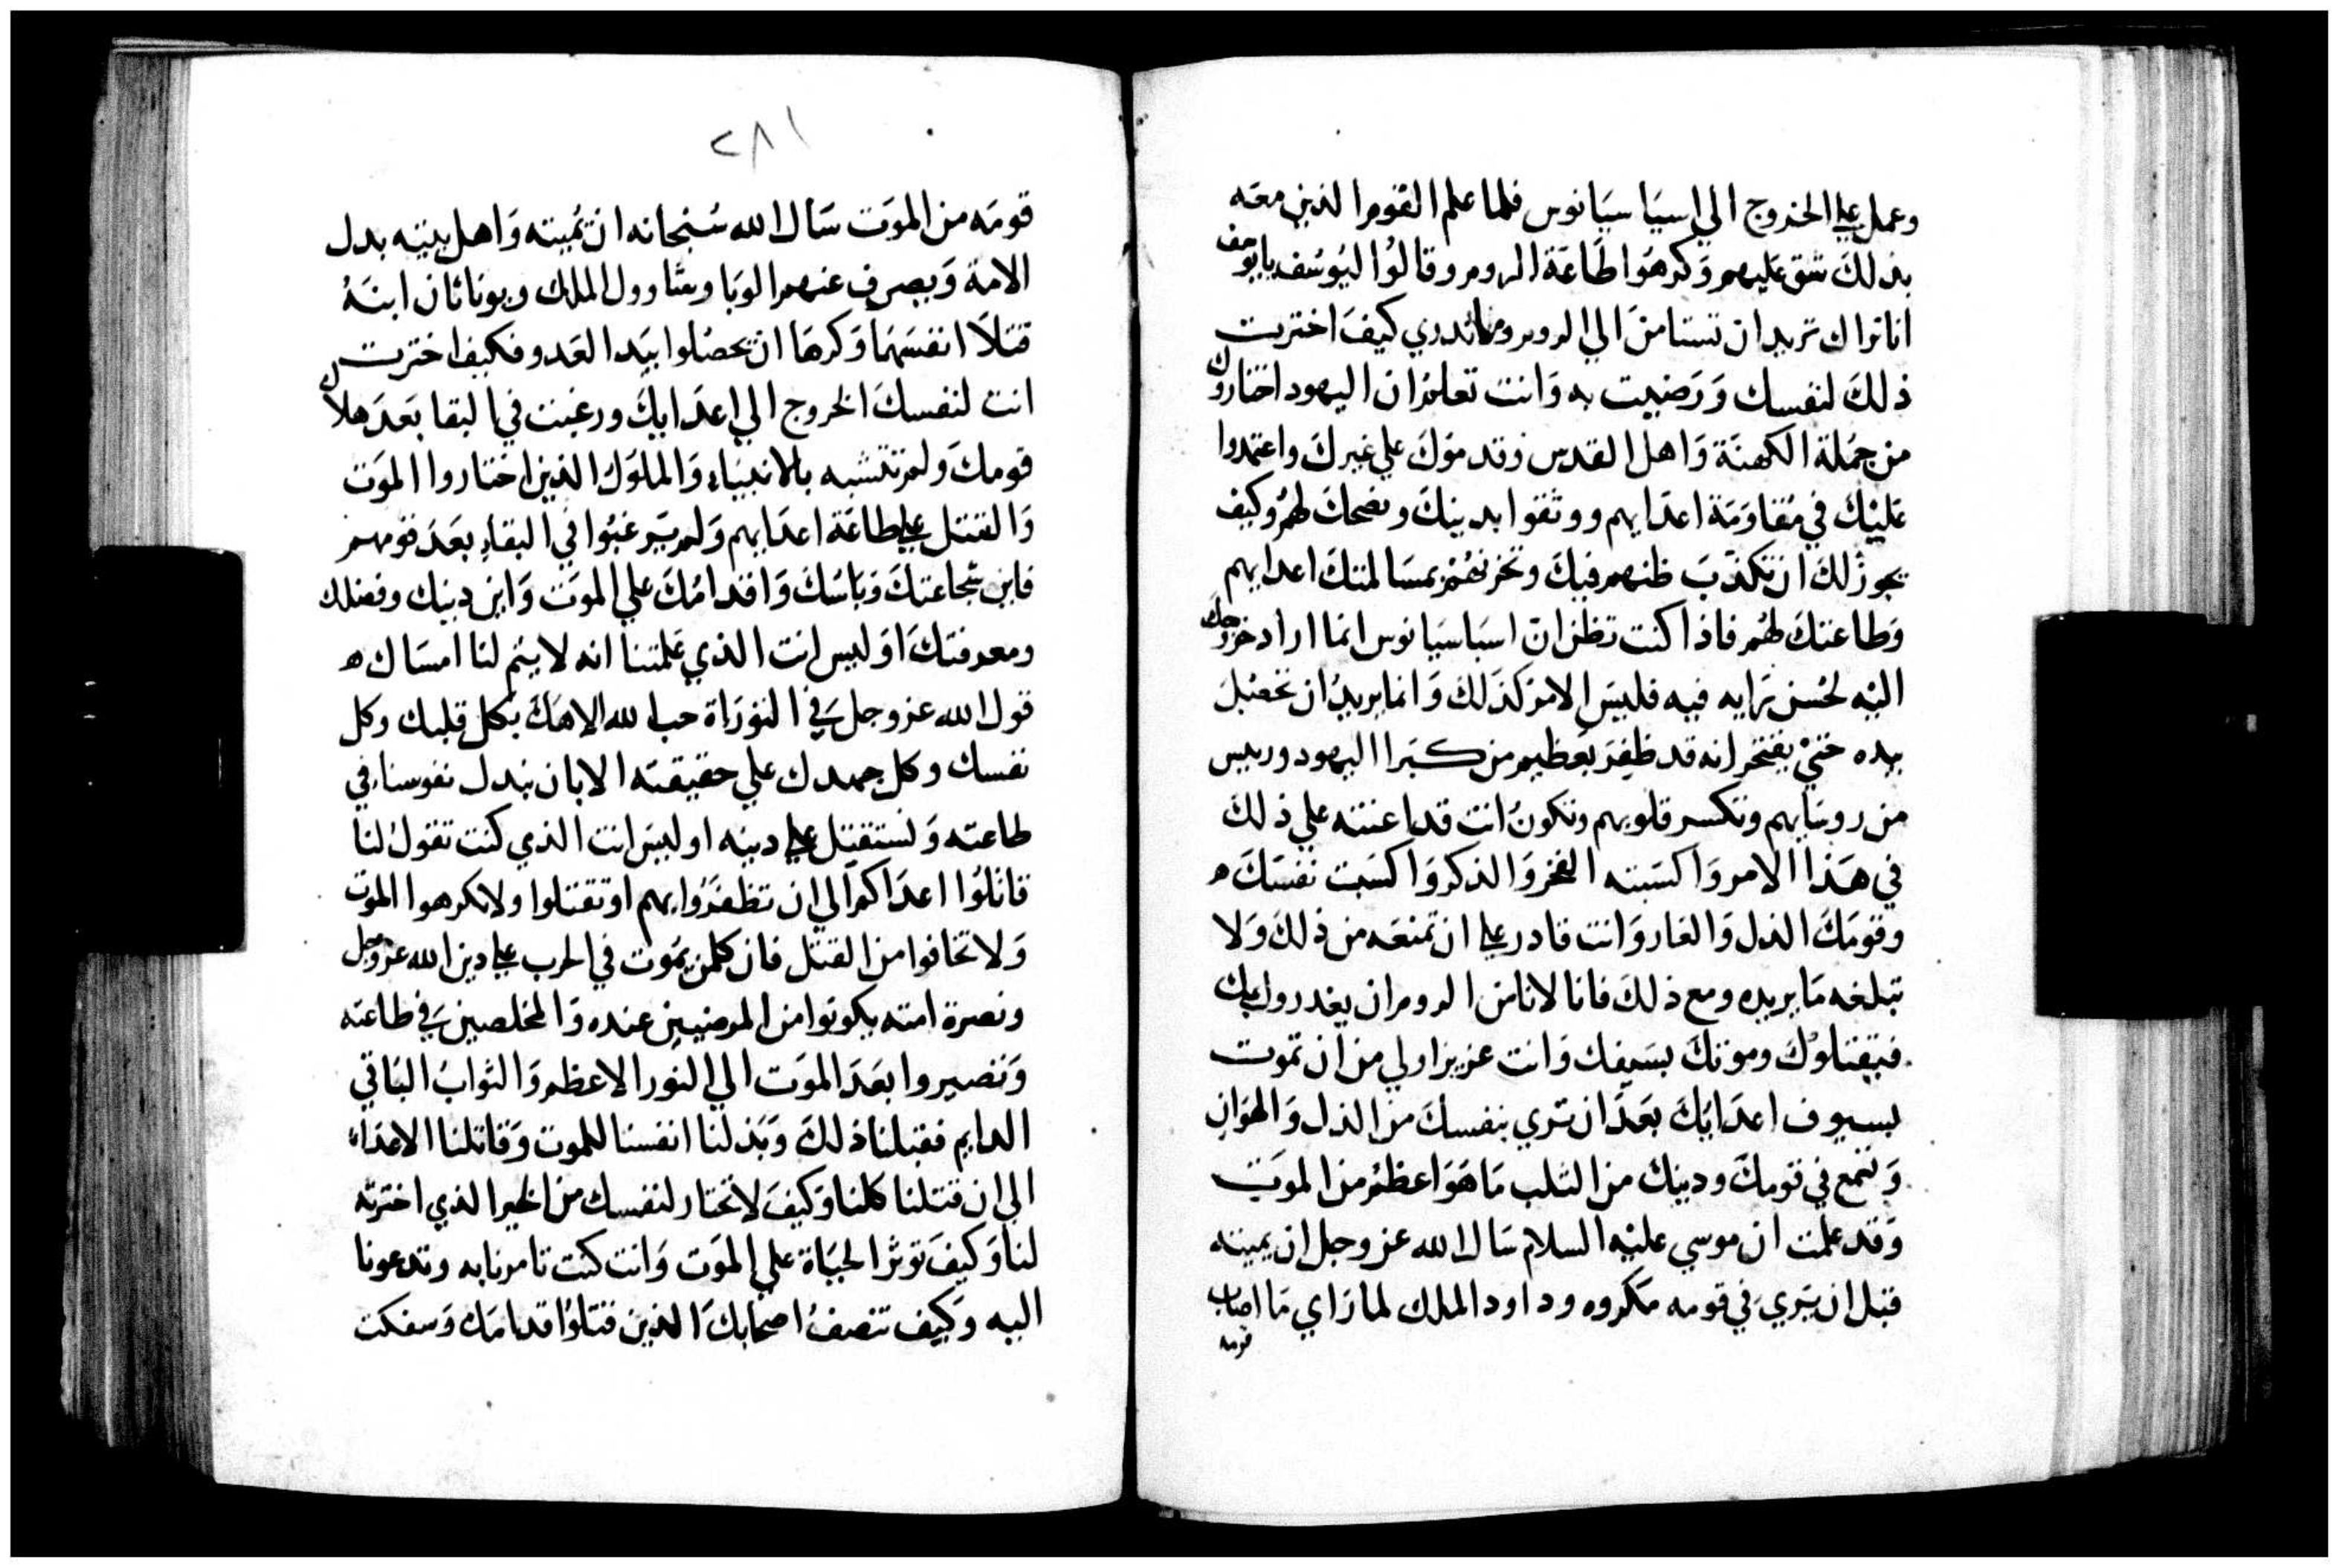 وعمل علي الخروج الي اسباسيانوس فلما علم القوم الذين معه
بذلك شق عليهم وكرهوا طاعة الروم وقالوا ليوسف يا يوسف
انا نراك تريد ان تستامن الي الروم وما ندري كيف اخترت
ذلك لنفسك ورضيت به وانت تعلم ان اليهود اختاروك
من جملة الكهنة واهل القدس وقدموك علي غيرك واعتمدوا
عليك في مقاومة اعدايهم ووثقوا بدينك ونصحك لهم وكيف
يجوز لك ان تكذب ظنهم فيك وتخزنهم بمسالمتك اعدايهم
وطاعتك لهم فاذا كنت تظن ان اسباسيانوس انما اراد خروجك
اليه لحسن رايه فيه فليس الامر كذلك وانما يريد ان تحصل
بيده حتي يفتخر انه قد ظفر بعظيم من كبرا اليهود وريس
من روسايهم وتكسر قلوبهم وتكون انت قد اعنته علي ذلك
في هذا الامر واكسبته الفخر والذكر واكسبت نفسك
وقومك الذل والعار وانت قادر علي ان تمنعه من ذلك ولا
تبلغه ما يريده ومع ذلك فانا لا نامن الروم ان يغدروا بك
فيقتلوك وموتك بسيفك وانت عزيز اولي من ان تموت
بسيوف اعدايك بعد ان تري بنفسك من الذل والهوان
وتسمع في قومك ودينك من الثلب ما هو اعظم من الموت
وقد علمت ان موسي عليه السلام سال الله عز وجل ان يميته
قبل ان يري في قومه مكروه وداود الملك لما راي ما اصاب
قومه
٢٨١
قومه من الموت سال الله سبحانه ان يميته واهل بيته بدل
الامة ويصرف عنهم الوبا وشاوول الملك ويوناثان ابنه
قتلا انفسهما وكرها ان يحصلوا بيد العدو فكيف اخترت
انت لنفسك الخروج الي اعدايك ورغبت في البقا بعد هلاك
قومك ولم تتشبه بالانبياء والملوك الذين اختاروا الموت
والقتل علي طاعة اعدايهم ولم يرغبوا في البقاء بعد قومهم
فاين شجاعتك وباسك واقدامك علي الموت واين دينك وفضلك
ومعرفتك او ليس انت الذي علمتنا انه لا يتم لنا امساك
قول الله عز وجل في التوراة حب الله الاهك بكل قلبك وكل
نفسك وكل جهدك علي حقيقته الا بان نبذل نفوسنا في
طاعته ونستقتل علي دينه او ليس انت الذي كنت تقول لنا
قاتلوا اعداكم الي ان تظفروا بهم او تقتلوا ولا تكرهوا الموت
ولا تخافوا من القتل فان كلمن يموت في الحرب علي دين الله عز وجل
ونصرة امته يكونوا من المرضيين عنده والمخلصين في طاعته
وتصيروا بعد الموت الي النور الاعظم والثواب الباقي
الدايم فقبلنا ذلك وبذلنا انفسنا للموت وقاتلنا الاعداء
الي ان قتلنا كلنا وكيف لا تختار لنفسك من الخير الذي اخترته
لنا وكيف توثر الحياة علي الموت وانت كنت تامرنا به وتدعونا
اليه وكيف تنصف اصحابك الذين قتلوا قدامك وسفكت